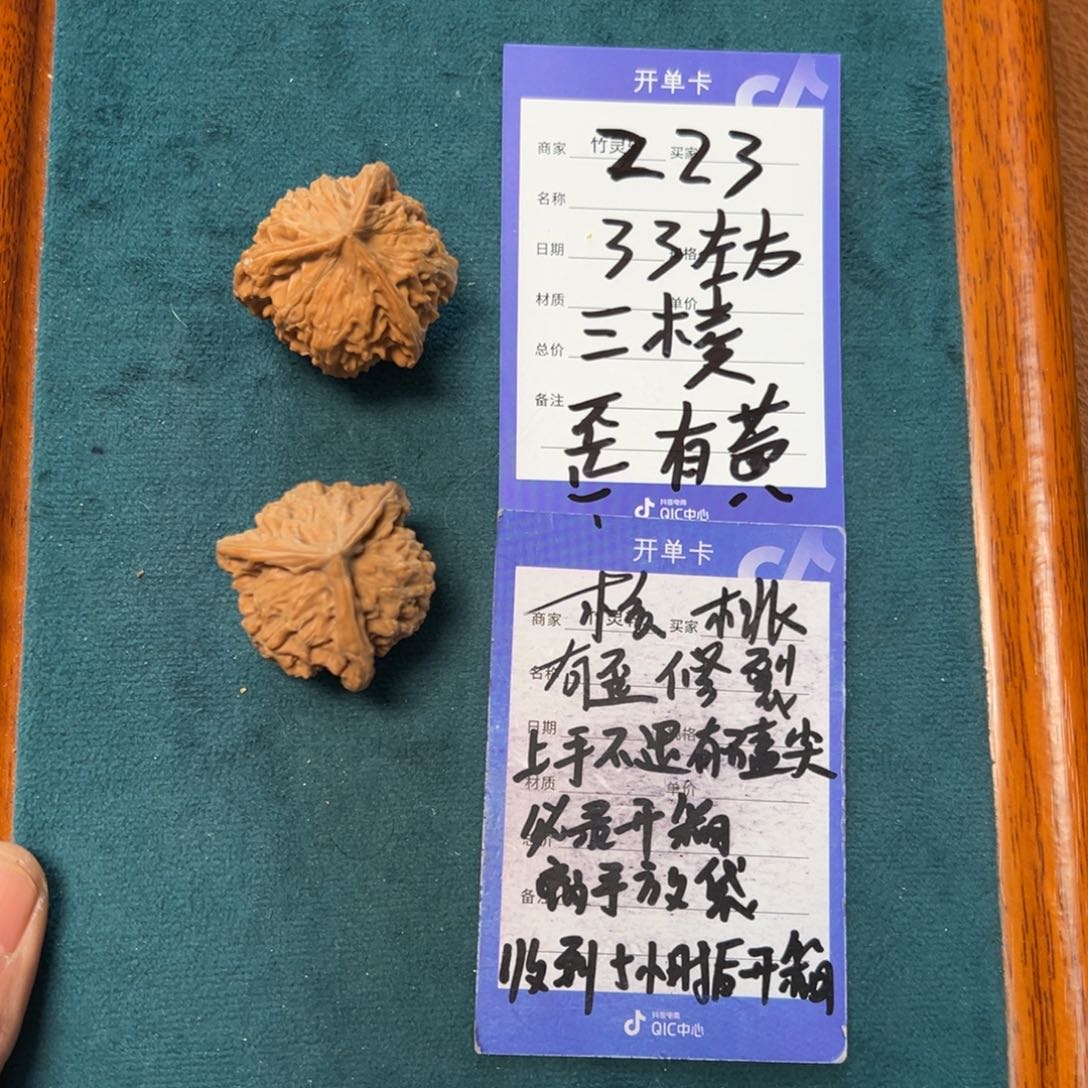 开单卡
商家 竹灵 买家
223
名称
日期 格
33左右
材质 单价
三棱
总价
备注
歪 有黄
抖音电商
QIC中心
开单卡
商家 灵 买家
核桃
名称
有歪修裂
日期 格
上手不退有磕尖
材质 单价
必录开箱
备注
收到 小时后开箱
抖音电商
QIC中心